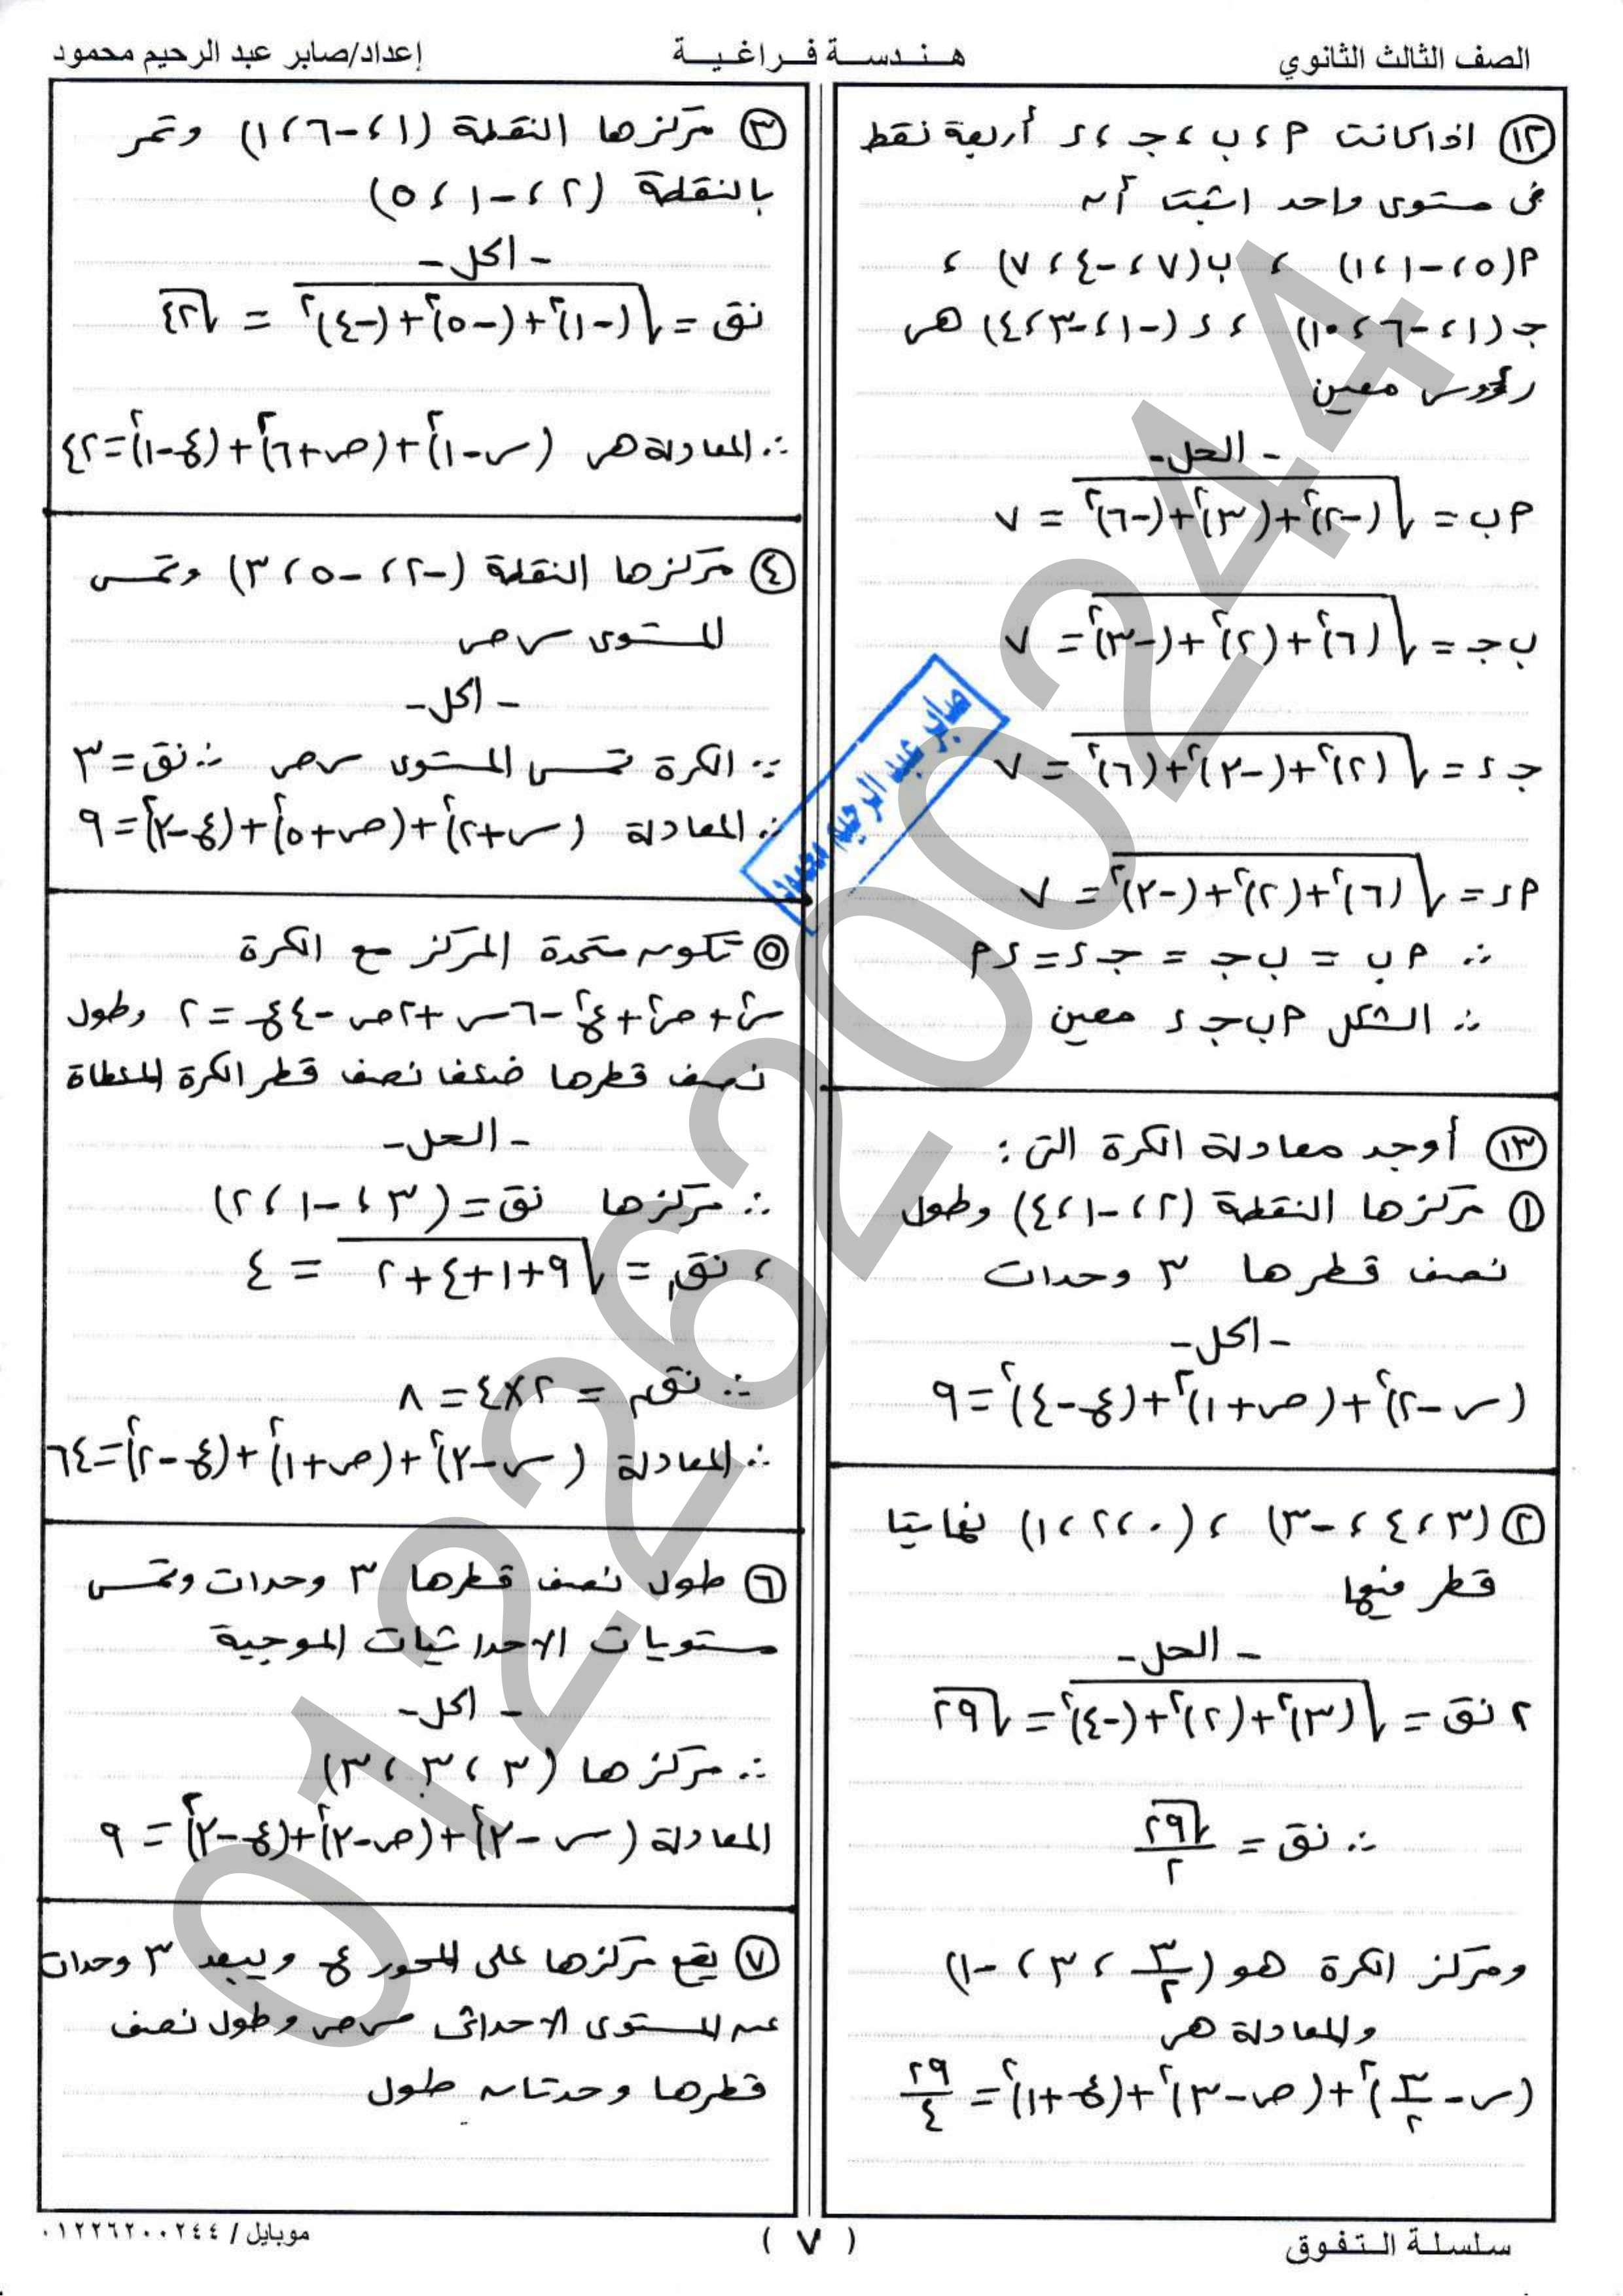 الصف الثالث الثانوي
هندسة فراغية
إعداد/صابر عبد الرحيم محمود
١٢ اذا كانت م ، ب ، جـ ، د أربعة نقط
فى مستوى واحد اثبت أن
م(٥، -١، ١) ، ب(٧، -٤، ٧) ،
جـ(١، -٦، ١٠) ، د(-١، -٣، ٤) هى
رؤوس معين
- الحل -
م ب = √((-٢)² + (٣)² + (-٦)²) = ٧
ب جـ = √((٦)² + (٢)² + (-٣)²) = ٧
جـ د = √((٢)² + (-٣)² + (٦)²) = ٧
م د = √((٦)² + (٢)² + (-٣)²) = ٧
∴ م ب = ب جـ = جـ د = د م
∴ الشكل م ب جـ د معين
١٣ أوجد معادلة الكرة التى :
١ مركزها النقطة (٢، -١، ٤) وطول
نصف قطرها ٣ وحدات
- الحل -
(س - ٢)² + (ص + ١)² + (ع - ٤)² = ٩
٢ (٣، ٤، -٣) ، (٠، ٢، ١) نهايتا
قطر فيها
- الحل -
٢ نق = √((٣)² + (٢)² + (-٤)²) = √٢٩
∴ نق = √٢٩/٢
ومركز الكرة هو (٣/٢ ، ٣ ، -١)
والمعادلة هى
(س - ٣/٢)² + (ص - ٣)² + (ع + ١)² = ٢٩/٤
٣ مركزها النقطة (١، -٦، ١) وتمر
بالنقطة (٢، -١، ٥)
- الحل -
نق = √((-١)² + (-٥)² + (-٤)²) = √٤٢
∴ المعادلة هى (س - ١)² + (ص + ٦)² + (ع - ١)² = ٤٢
٤ مركزها النقطة (-٢، -٥، ٣) وتمس
المستوى س ص
- الحل -
∵ الكرة تمس المستوى س ص ∴ نق = ٣
∴ المعادلة (س + ٢)² + (ص + ٥)² + (ع - ٣)² = ٩
٥ تكون متحدة المركز مع الكرة
س² + ص² + ع² - ٦س + ٢ص - ٤ع = ٢ وطول
نصف قطرها ضعف نصف قطر الكرة المعطاة
- الحل -
∴ مركزها نق = (٣، -١، ٢)
، نق₁ = √(٩+١+٤+٢) = ٤
∴ نق₂ = ٢×٤ = ٨
∴ المعادلة (س - ٣)² + (ص + ١)² + (ع - ٢)² = ٦٤
٦ طول نصف قطرها ٣ وحدات وتمس
مستويات الاحداثيات الموجبة
- الحل -
∴ مركزها (٣، ٣، ٣)
المعادلة (س - ٣)² + (ص - ٣)² + (ع - ٣)² = ٩
٧ يقع مركزها على المحور ع ويبعد ٣ وحدات
عن المستوى الاحداثى س ص وطول نصف
قطرها وحدتان طول
صابر عبد الرحيم محمود
01226200244
سلسلة التفوق
( ٧ )
موبايل / ٠١٢٢٦٢٠٠٢٤٤